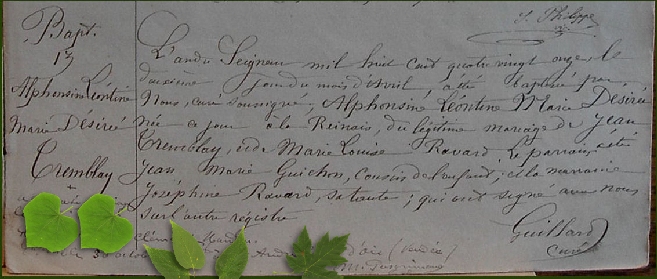 J. Philippe
Bapt.
13
Alphonsine Léontine
Marie Désiréé
Tremblay
L'an du Seigneur mil huit cent quatre vingt onze le
deuxième jour du mois d'Avril, a été baptisée par
Nous, curé soussigné, Alphonsine Léontine Marie Désirée
née ce jour à la , du légitime mariage de Jean
Tremblay, et de Marie Louise Ravard. Le parrain a été
Jean Marie Guichon, Cousin de l'enfant; et la marraine
Joséphine Ravard, sa tante; qui ont signé avec nous
sur l'autre registre
Guillard
Curé